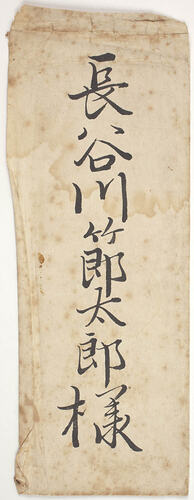 長谷川節太郎様